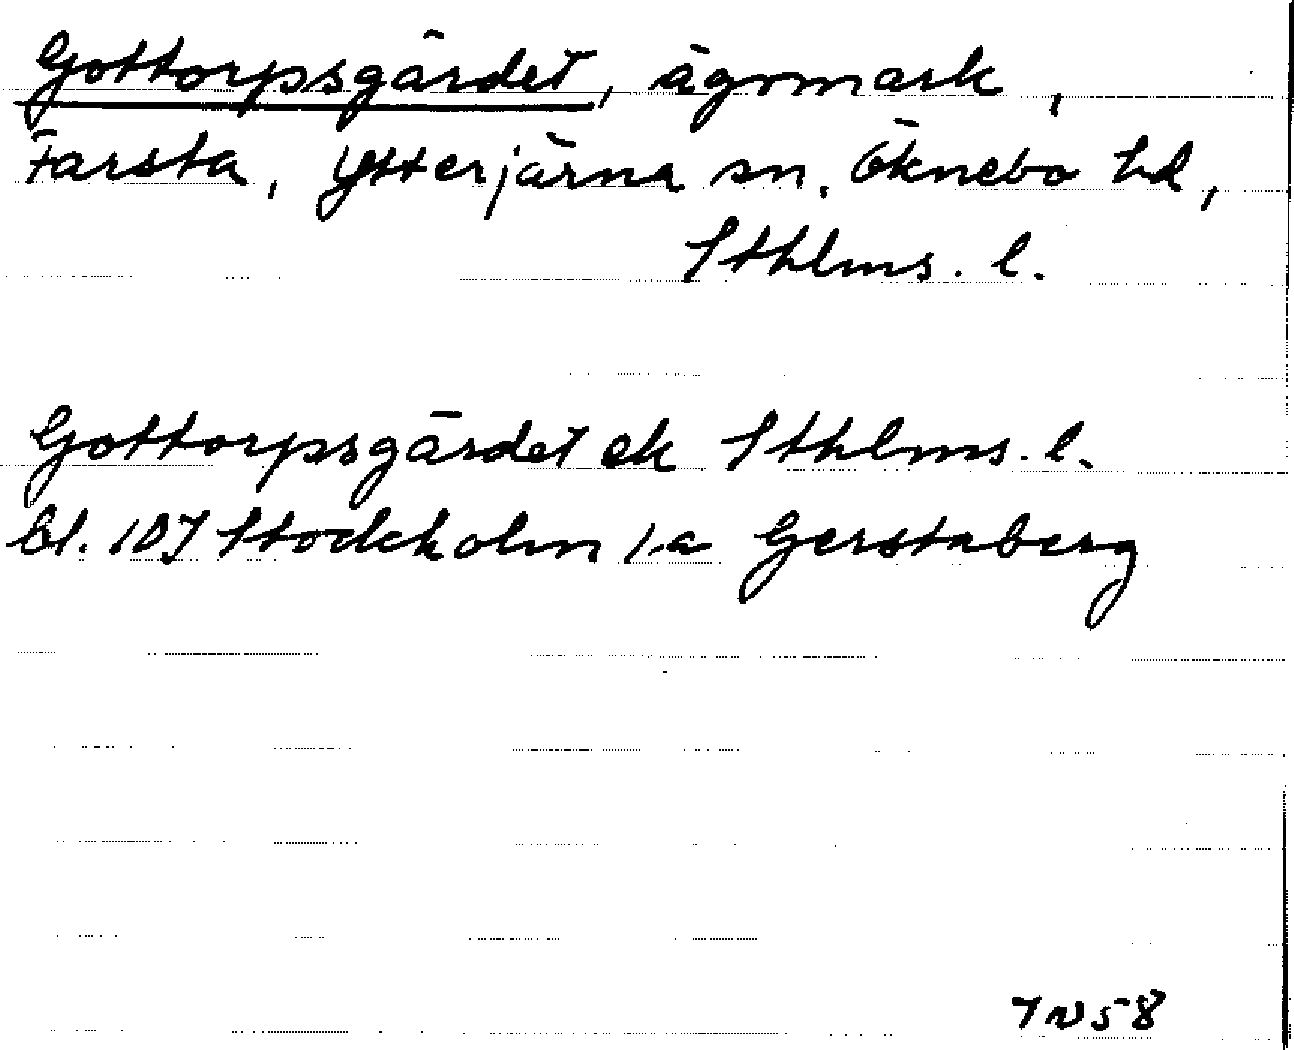 Gottorpsgärdet, ägomark,
Farsta, Ytterjärna sn. Öknebo hd,
Sthlms. l.
Gottorpsgärdet ek Sthlms. l.
bl. 107 Stockholm 1.a Gerstaberg
58